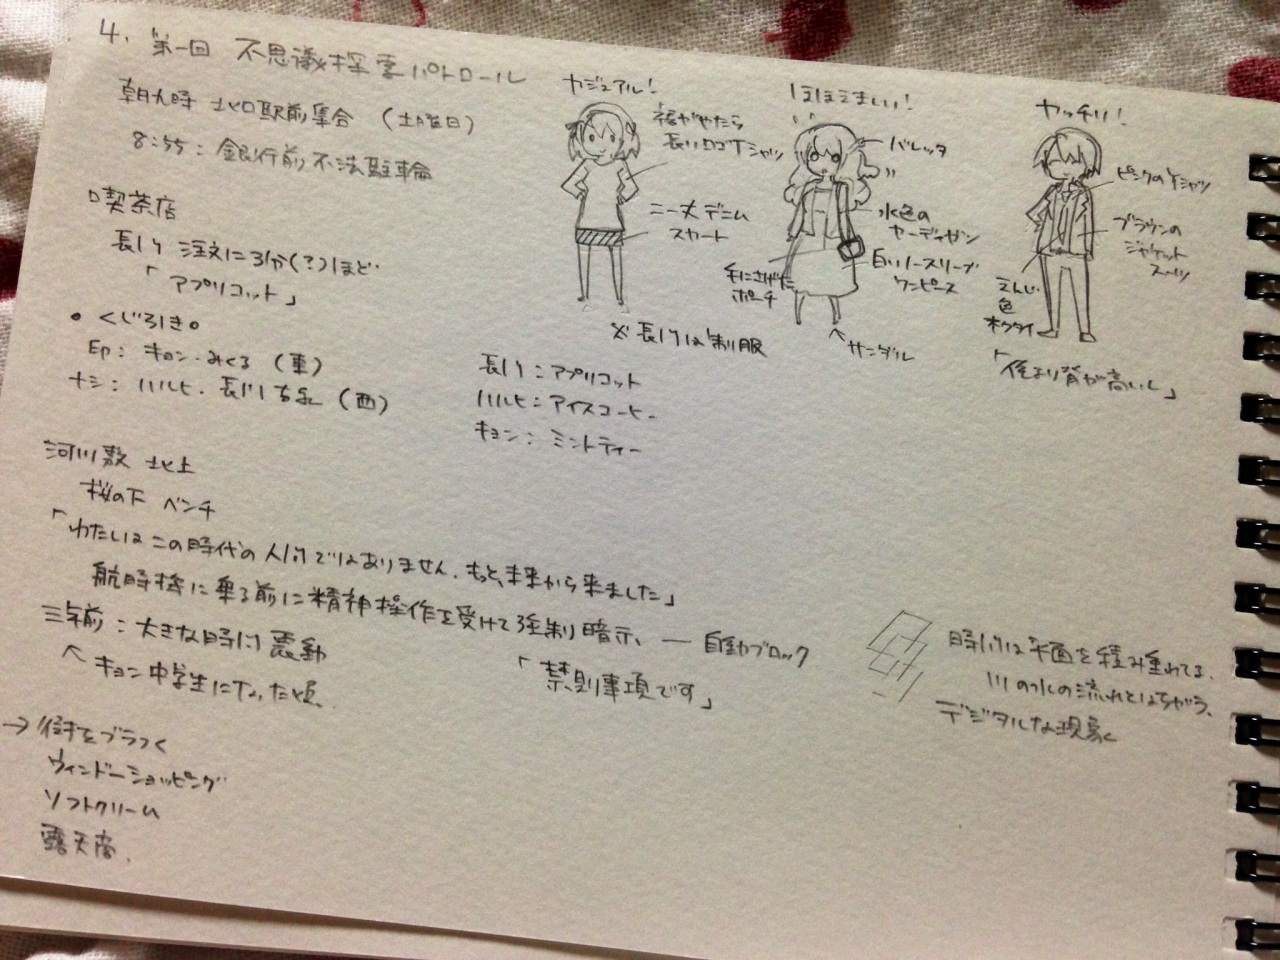 4. 第一回 不思議探索パトロール
朝九時 北口駅前集合 (土曜日)
8:55: 銀行前不法駐輪
喫茶店
長門 注文に3分(?)ほど
「アプリコット」
• くじ引き。
印: キョン・みくる (東)
ナシ: ハルヒ・長門・古泉 (西)
カジュアル!
裾がやたら
長いロゴTシャツ
ニー丈デニム
スカート
ほほえましい!
バレッタ
水色の
カーディガン
白いノースリーブ
ワンピース
手にさげた
ポーチ
サンダル
カッチリ!
ピンクのYシャツ
ブラウンの
ジャケット
スーツ
えんじ
色
ネクタイ
「俺より背が高いし」
※長門は制服
長門:アプリコット
ハルヒ:アイスコーヒー
キョン: ミントティー
河川敷 北上
桜の下 ベンチ
「わたしはこの時代の人間ではありません。もっと、未来から来ました」
航時機に乗る前に精神操作を受けて強制暗示、— 自動ブロック
「禁則事項です」
三年前:大きな時間震動
へ キョン中学生になった頃。
時間は平面を積み重ねてる。
川の水の流れとはちがう、
デジタルな現象
→街をブラつく
ウィンドーショッピング
ソフトクリーム
露天商。